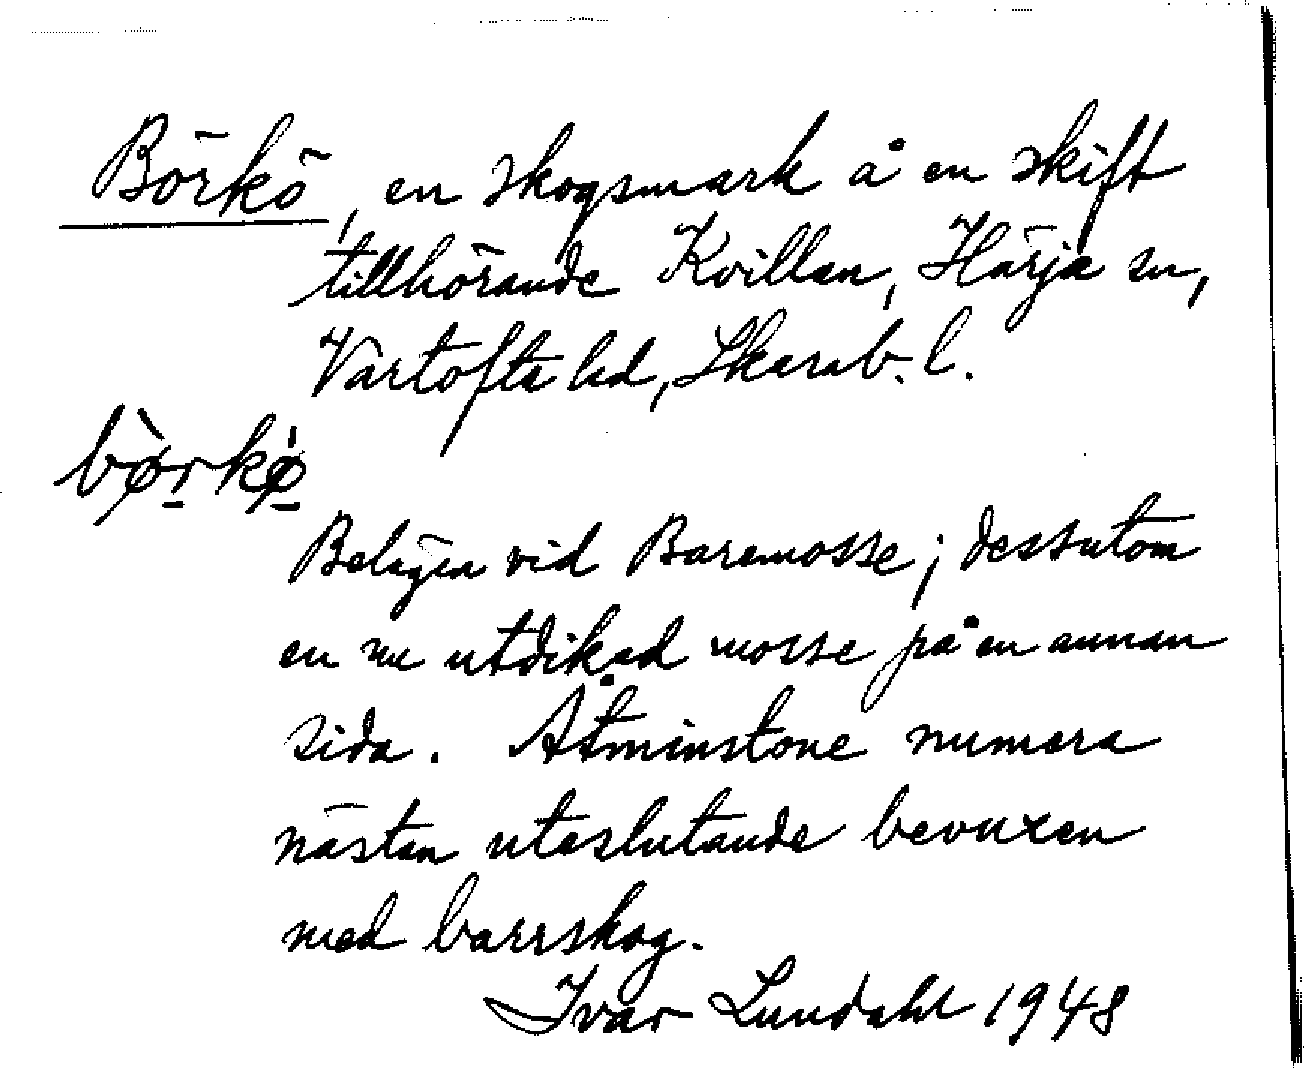 Börkö, en skogsmark å en skift
tillhörande Kvillen, Härja sn,
Vartofta hd, Skarab. l.
bø̀rkø̇
Belägen vid Baremosse; dessutom
en nu utdikad mosse på en annan
sida. Åtminstone numera
nästan uteslutande bevuxen
med barrskog.
Ivar Lundahl 1948